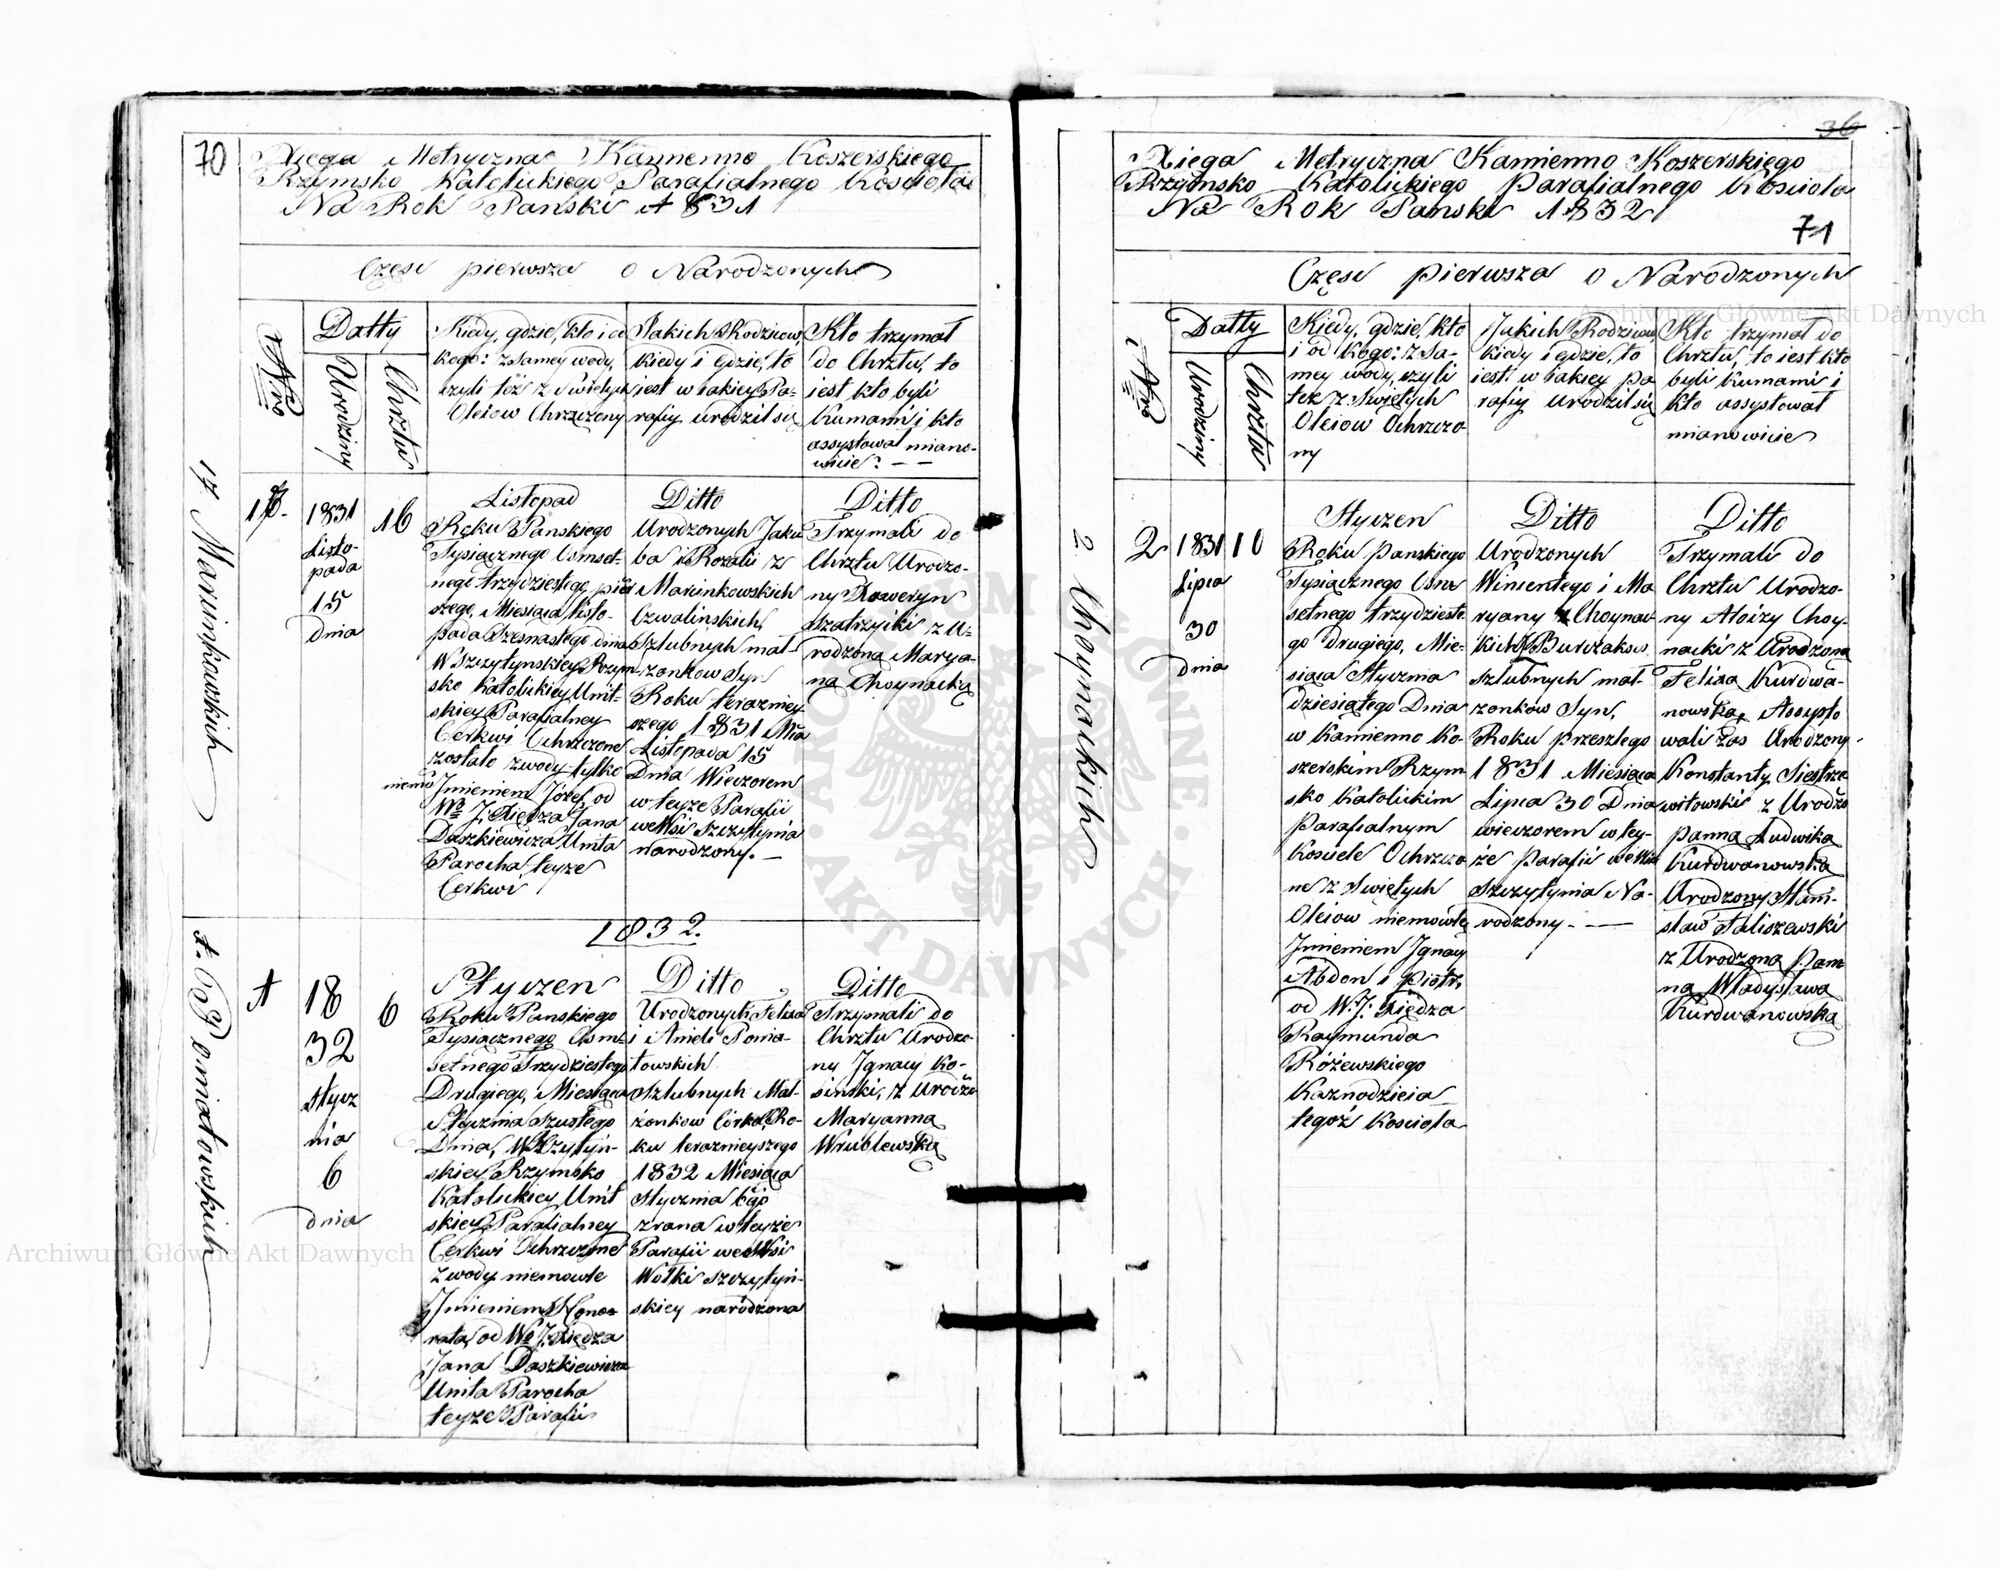 70
Xięga Metryczna Kamienno Koszerskiego
Rzymsko Katolickiego Parafialnego Kościoła
Na Rok Panski 1831
Częsc pierwsza o Narodzonych
Nro
Datty
Urodziny
Chrztu
Kiedy, gdzie, kto i od
kogo: z Samey wody,
czyli też z Swiętych
Oleiow Chrzczony
Iakich Rodzicow,
kiedy i gdzie, to
iest w iakiey Pa-
rafiy urodził się
Kto trzymał
do Chrztu, to
iest kto byli
Kumami i kto
assystował miano-
wicie: —
17 Marcinkowskich
17.
1831
Listo-
pada
15
dnia
16
Listopad
Roku Panskiego
Tysiącznego Osmset-
nego trzydziestego pier
szego, Miesiąca listo-
pada Szesnastego dnia
W Szczytynskiey Rzym
sko Katolickiey Unit-
skiey Parafialney
Cerkwi Ochrzczone
zostało z wody tylko
niemo
Jmieniem Józef od
W. J. Xiędza Jana
Daszkiewicza Unita
Parocha teyze
Cerkwi
Ditto
Urodzonych Jaku
ba i Rozalii z
Marcinkowskich
Czwalinskich
Szlubnych mał-
zonkow Syn
Roku terazniey
szego 1831 Mca
Listopada 15
Dnia Wieczorem
w teyze Parafii
we Wsi Szczytynia
narodzony. —
Ditto
Trzymali do
Chrztu Urodzo-
ny Xaweryn
Szatrzycki z U-
rodzoną Marya-
ną Choynacką
1832.
1. Poniatowskich
1
18
32
Stycz
nia
6
dnia
6
Styczen
Roku Panskiego
Tysiącznego Osm
setnego Trzydziestego
Drugiego, Miesiąca
Stycznia Szustego
Dnia, W Szczytyn-
skiey Rzymsko
Katolickiey Unit
skiey Parafialney
Cerkwi Ochrzczone
z wody niemowle
Jmieniem Hono-
rata, od W. J. Xiędza
Jana Daszkiewicza
Unita Parocha
teyze Parafii
Ditto
Urodzonych Felixa
i Anieli Ponia-
towskich
Szlubnych Mał-
żonkow Córka, Ro-
ku terazniejszego
1832 Miesiąca
Stycznia 6go
zrana w teyże
Parafii we Wsi
Wolki Szczytyn-
skiey narodzona
Ditto
Trzymali do
Chrztu Urodzo-
ny Jgnacy Ko-
sinski, z Urodzo
Maryanną
Wrublewską
36
Xięga Metryczna Kamienno Koszerskiego
Rzymsko Katolickiego Parafialnego Kościoła
Na Rok Panski 1832
71
Częsc pierwsza o Narodzonych
Nro
Datty
Urodziny
Chrztu
Kiedy, gdzie, kto
i od kogo: z Sa-
mey wody, czyli
też z Swiętych
Oleiow Ochrzczo
ny
Jakich Rodzicow,
kiedy i gdzie, to
iest w iakiey pa
rafiy urodził się
Kto trzymał do
Chrztu, to iest kto
byli kumami i
kto assystował
mianowicie
2 Choynackich
2
1831
Lipca
30
dnia
10
Styczen
Roku Panskiego
Tysiącznego Osm
setnego trzydzieste
go Drugiego, Mie-
siąca Stycznia
dziesiątego Dnia
w Kamienno Ko-
szerskim Rzym
sko Katolickim
Parafialnym
Kosciele Ochrzczo
ne z Swiętych
Oleiow niemowlę
Jmieniem Jgnacy
Abdon i Piotr,
od W. J. Xiędza
Raymunda
Różewskiego
Kaznodzieia
tegoż Kosciola
Ditto
Urodzonych
Wincentego i Ma
ryany z Choynac
kich Burczakow
szlubnych mał-
zonków Syn,
Roku przeszlego
1831 Miesiąca
Lipca 30 Dnia
wieczorem w tey-
że Parafii we Wsi
Szczytynia Na-
rodzony. —
Ditto
Trzymali do
Chrztu Urodzo-
ny Aloizy Choy-
nacki z Urodzoną
Felixą Kurdwa-
nowską, Assysto
wali zas Urodzony
Konstanty Siestrze
witowski z Urodzo
Panną Ludwiką
Kurdwanowską
Urodzony Stani-
sław Faliszewski
z Urodzoną Pan
ną Władysławą
Kurdwanowską
Archiwum Główne Akt Dawnych
Archiwum Główne Akt Dawnych
ARCHIWUM GŁÓWNE AKT DAWNYCH